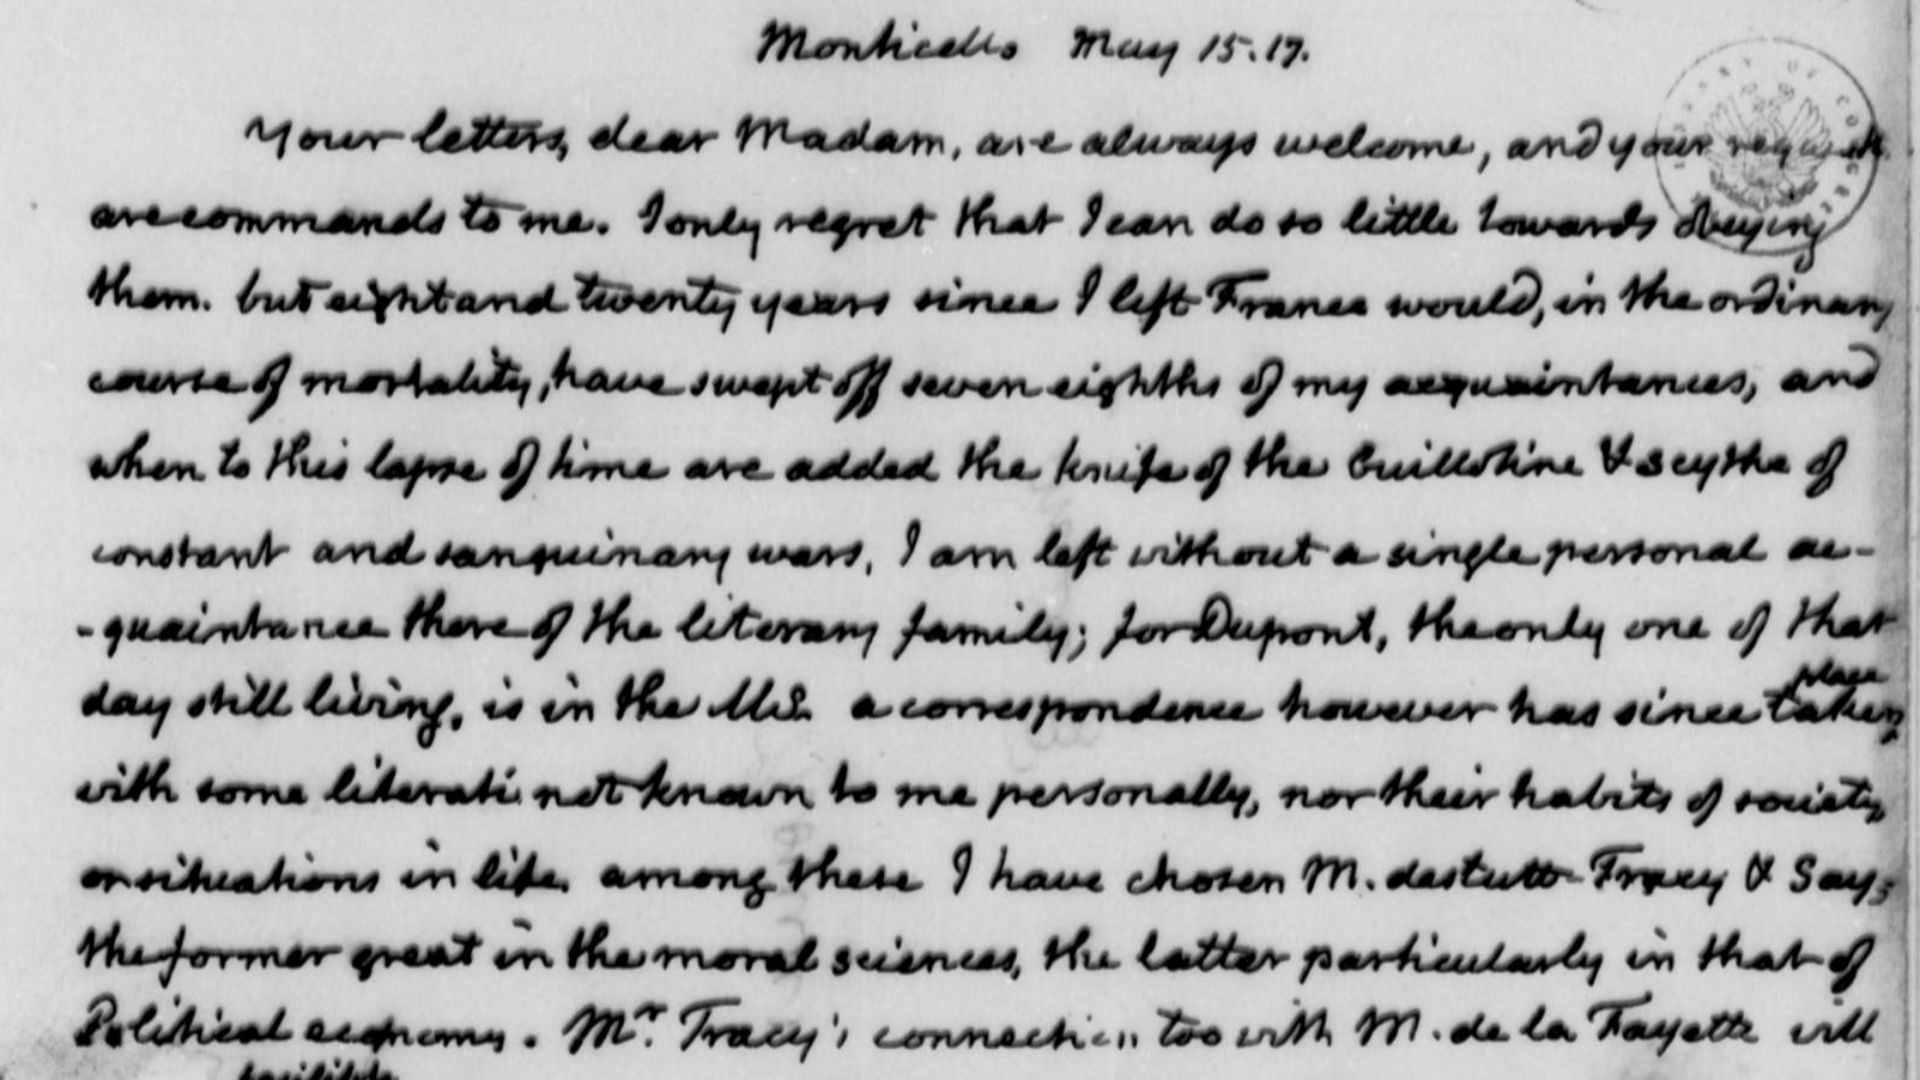 Monticello May 15. 17.
Your letters, dear Madam, are always welcome, and your requests
are commands to me. I only regret that I can do so little towards obeying
them. but eight and twenty years since I left France would, in the ordinary
course of mortality, have swept off seven eighths of my acquaintances, and
when to this lapse of time are added the knife of the Guillotine & scythe of
constant and sanguinary wars, I am left without a single personal ac-
-quaintance there of the literary family; for Dupont, the only one of that
place
day still living, is in the U.S. a correspondence however has since taken
with some literati not known to me personally, nor their habits of society
or situations in life. among these I have chosen M. destutt Tracy & Say;
the former great in the moral sciences, the latter particularly in that of
Political economy. Mr. Tracy's connection too with M. de la Fayette will
facilitate
LIBRARY OF CONGRESS